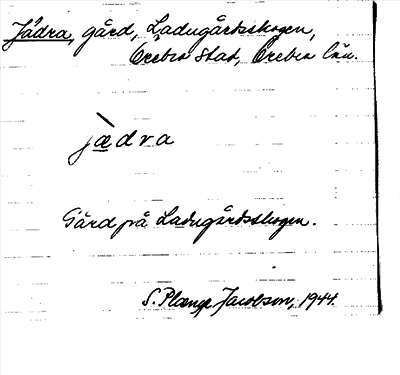 Jädra, gård, Ladugårdsskogen,
Örebro stad, Örebro län.
jàdra
Gård på Ladugårdsskogen.
S. Plænge Jacobson, 1944.